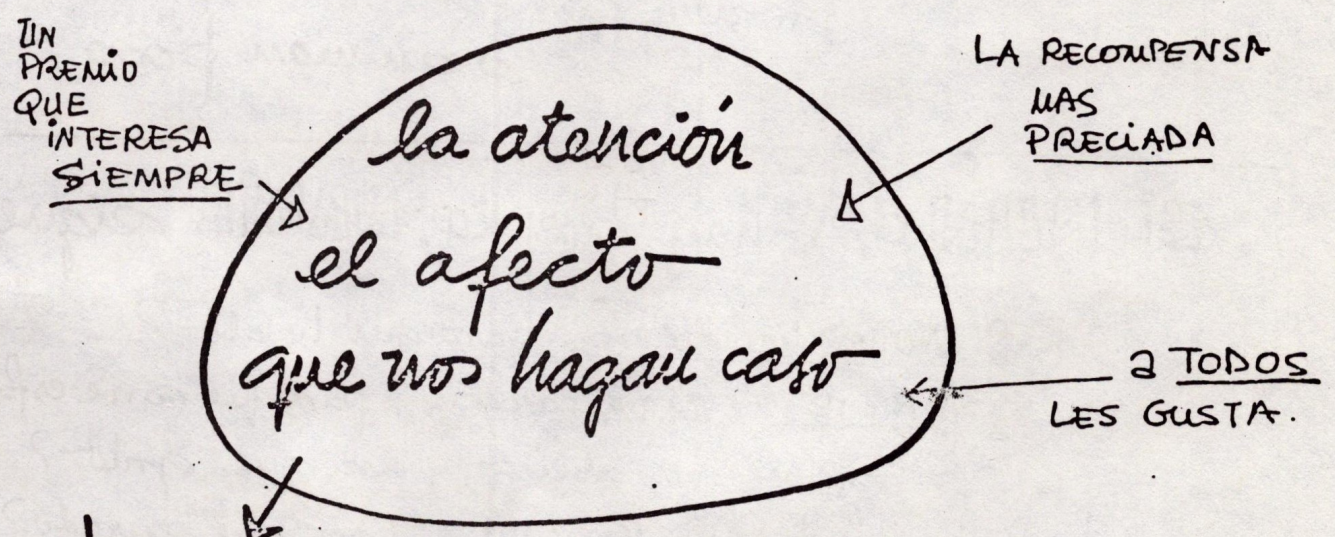 UN
PREMIO
QUE
INTERESA
SIEMPRE
LA RECOMPENSA
MAS
PRECIADA
la atención
el afecto
que nos hagan caso
a TODOS
LES GUSTA.